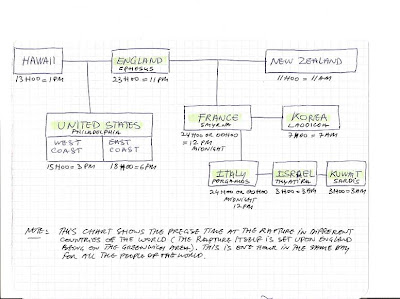 HAWAII
13H00 = 1PM
ENGLAND
EPHESUS
23H00 = 11PM
NEW ZEALAND
11H00 = 11AM
UNITED STATES
PHILADELPHIA
WEST COAST
EAST COAST
15H00 = 3PM
18H00 = 6PM
FRANCE
SMYRNA
24H00 OR 00H00
= 12 PM
MIDNIGHT
KOREA
LAODICEA
7H00 = 7AM
ITALY
PERGAMOS
24H00 OR 00H00
MIDNIGHT
12 PM
ISRAEL
THYATIRA
3H00 = 3AM
KUWAIT
SARDIS
3H00 = 3AM
NOTE: THIS CHART SHOWS THE PRECISE TIME AT THE RAPTURE IN DIFFERENT
COUNTRIES OF THE WORLD (THE RAPTURE ITSELF IS SET UPON ENGLAND
BEING ON THE GREENWICH AREA). THIS IS ONE HOUR IN THE SAME DAY
FOR ALL THE PEOPLE OF THE WORLD.